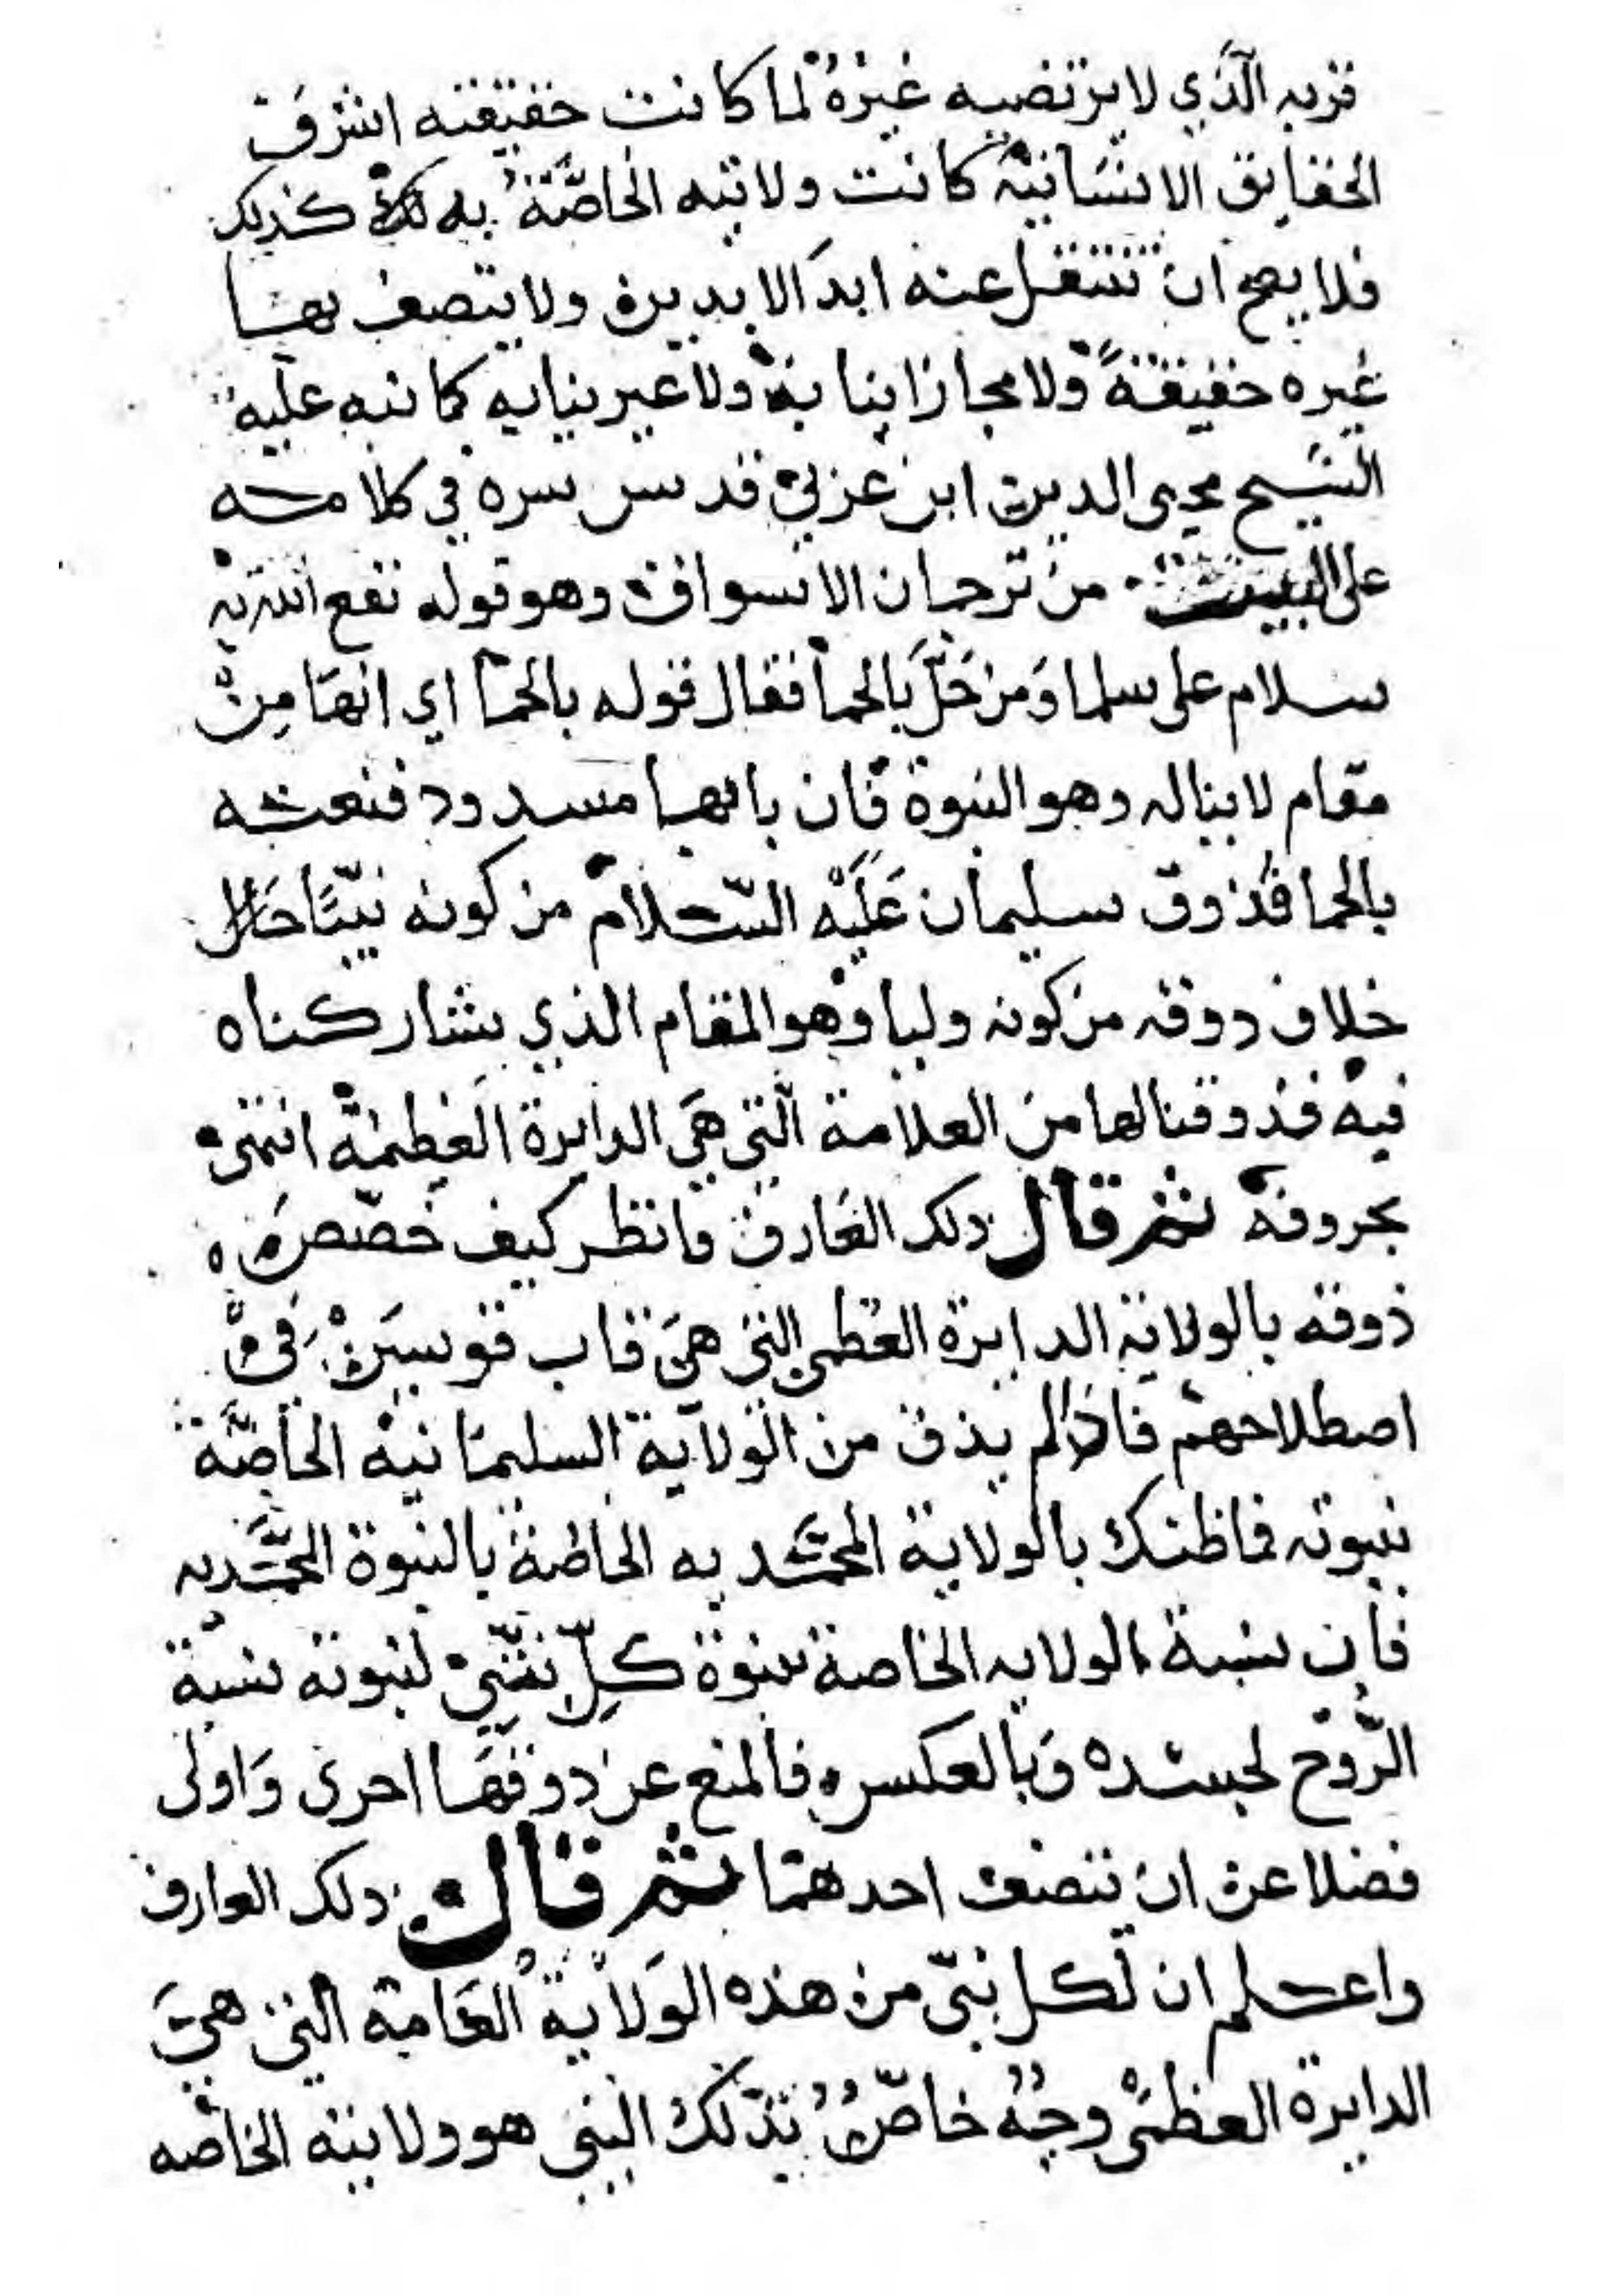 قربه الَّذي لا يرتضيه غيرهُ لما كانت حقيقته اشرف
الحقايق الانسَانيّة كانت ولايته الخاصَّةُ به كذلك
فلا يصح ان تنتقل عنه ابدَ الابدين ولا يتصف بها
غيره حقيقةً ولا مجازا بنيابة ولا غير نيابه كما نبه عليه
الشيخ محيى الدين ابن عربي قدس سره في كلامه
على البيت من ترجمان الاشواق وهو قوله نفع الله به
سلام على سلما وَمن حَلَّ بالحما فقال قوله بالحمَا اي انها مِن
مقام لا ينال وهو النبوة فان بابها مسدود فنعته
بالحما فذوق سليمان عَلَيْه السَّلام من كونه نبيًّا حَال
خلاف ذوقه من كونه وليا وهو المقام الذي يشاركناه
فيه فذوقنا لها من العلامة الَّتي هيَ الدايرة العَظِيمة انتهى
بحروفه ثم قال ذلك العَارف فانظر كيف خصَّص
ذوقه بالولاية الدايرة العظمى التي هيَ قاب قوسين في
اصطلاحهم فاذا لم يذق من الولاية السليمَانيه الخاصَّة
بنبوته فما ظنك بالولاية المحمَّديه الخاصة بالنبوة المحمَّديه
فان نسبة الولايه الخاصة بنبوة كلِّ نبيّ لنبوته نسبة
الرُّوح لجسَده وَبالعكس فالمنع عن ذوقهَا احرى وَاولى
فضلا عن ان يتصف احدهمَا ثم قال ذلك العارف
واعلم ان لكل نبيّ من هذه الوَلايةُ العَامة التي هيَ
الدايرة العظمى وجهُ خاصٌّ بذلك النبي هو ولايته الخاصه